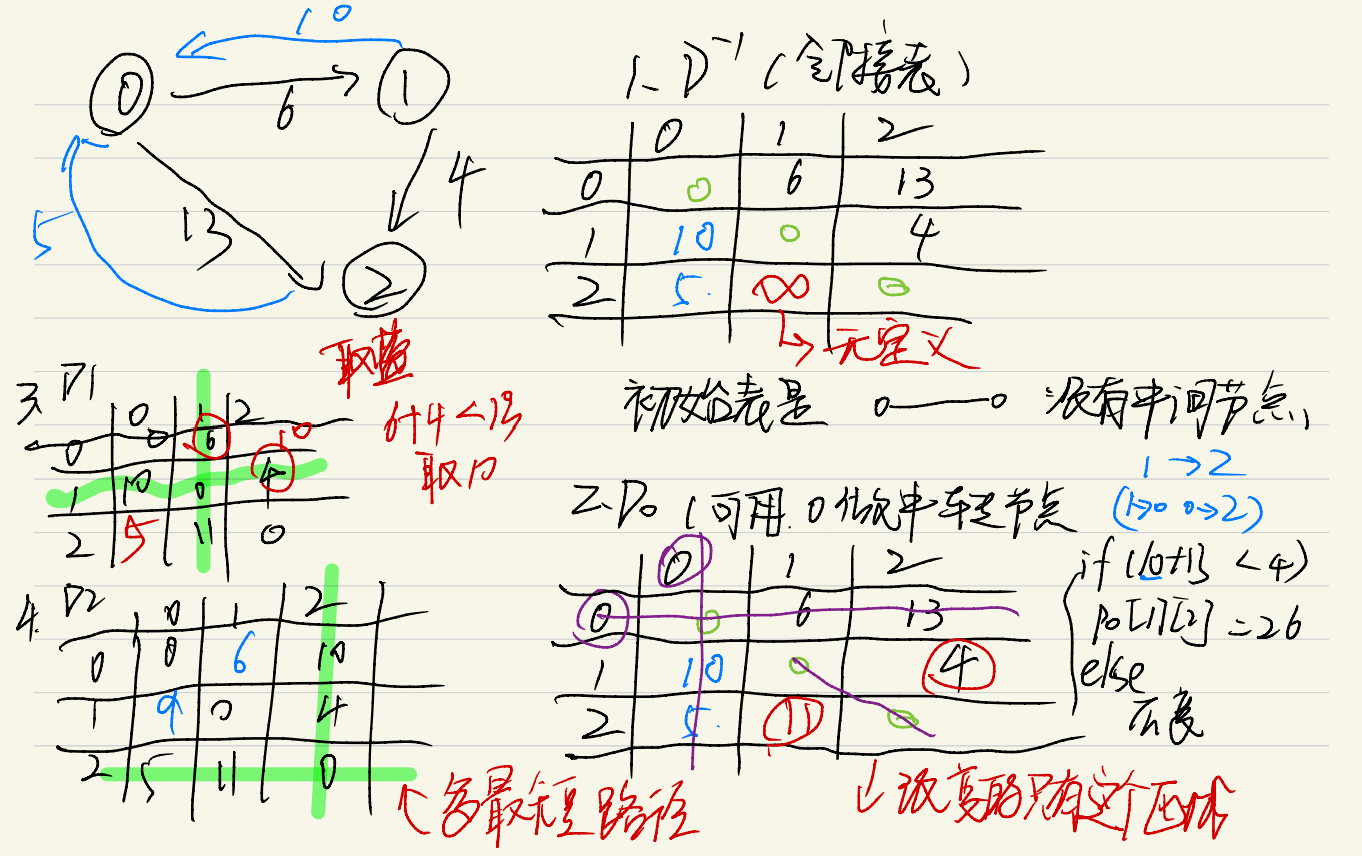 10
0 6 1
4
5 13
2
1、D⁻¹ (邻接表)
0 1 2
0 0 6 13
1 10 0 4
2 5 ∞ 0
↳ 无定义
初始表是 o—o 没有中间节点,
1→2
(1→0 0→2)
2、D0 (可用 0 做中转节点
0 1 2
0 0 6 13
1 10 0 4
2 5 11 0
if (10+13 < 4)
D0[1][2] = 26
else
不变
↓ 改变的只有这个区域
3、D1
0 1 2
0 0 6 10
1 10 0 4
2 5 11 0
取
6+4<13
取10
4. D2
0 1 2
0 0 6 10
1 9 0 4
2 5 11 0
↖ 最短路径